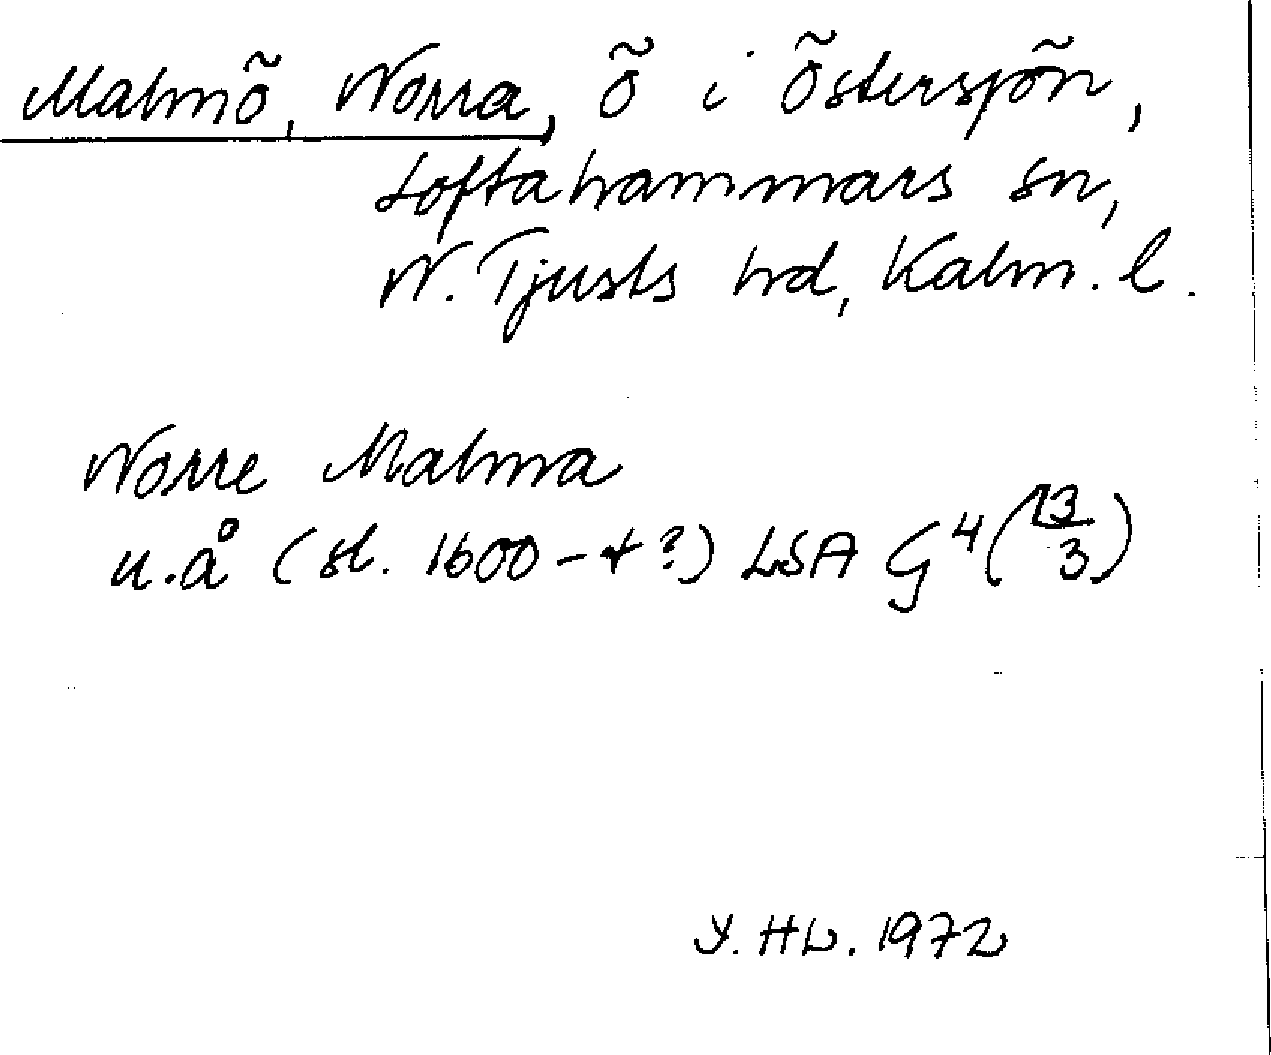 Malmö, Norra, ö i Östersjön,
Loftahammars sn,
N. Tjusts hd, Kalm. l.
Norre Malma
u.å (sl. 1600-t?) LSA G4(13/3)
Y. HL. 1972